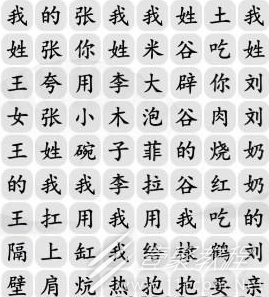 我的张我我姓土我
姓张你姓米谷吃姓
王夸用李大辟你刘
女张小木泡谷肉刘
王姓碗子菲的烧奶
的我我李拉谷红奶
王扛用我用我吃的
隔上缸我给隶鹤刘
壁肩烷热抱抱耍亲